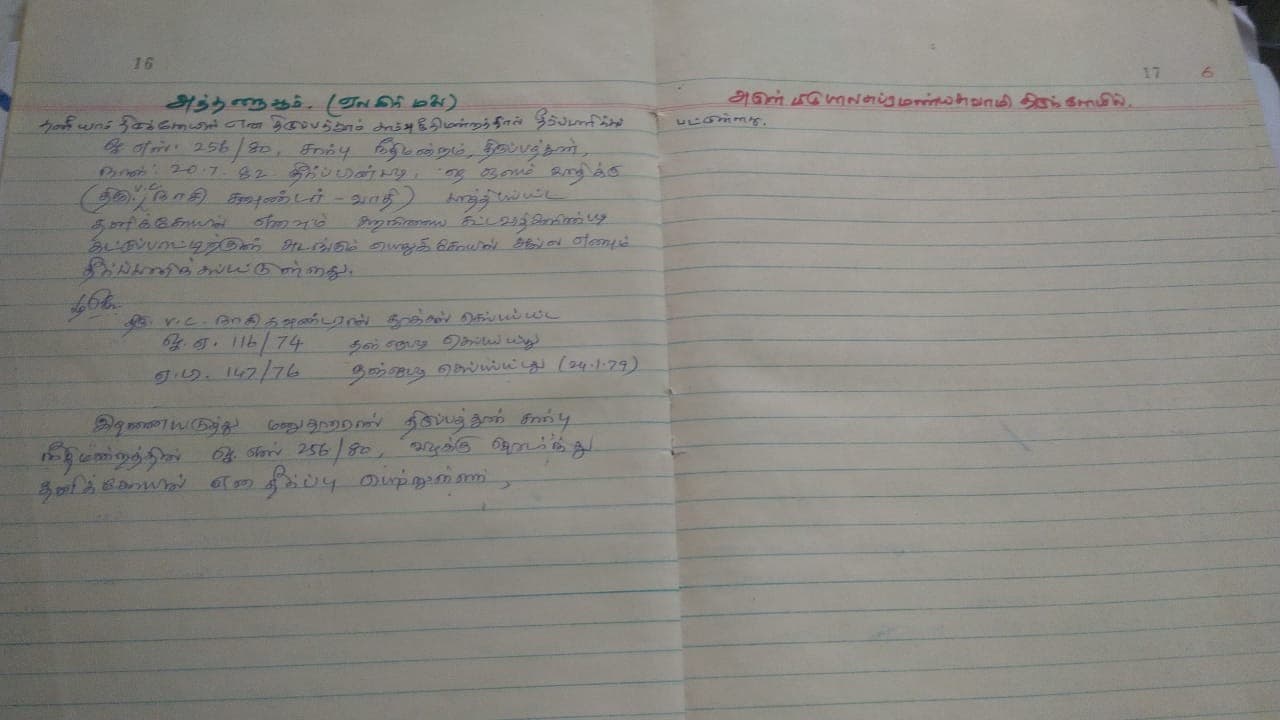 16
17 6
அத்தனாவூர். (ஏலகிரி மலை)
அருள்மிகு பாலசுப்ரமண்யசுவாமி திருக்கோயில்.
தனியார் திருக்கோயில் என திருப்பத்தூர் சார்பு நீதிமன்றத்தால் தீர்ப்பளிக்கப்
பட்டுள்ளது.
ஓ.எஸ். 256/80, சார்பு நீதிமன்றம், திருப்பத்தூர்,
நாள்: 20.7.82 தீர்ப்பின்படி,
(திரு. V.C. நாகி கவுண்டர் - வாதி) பாத்தியப்பட்ட
தனிக்கோயில் எனவும் அறநிலைய சட்டவிதிகளின்படி
கட்டுப்பாட்டிற்குள் அடங்கும் பொதுக்கோயில் அல்ல எனவும்
தீர்ப்பளிக்கப்பட்டுள்ளது.
திரு. V.C. நாகி கவுண்டரால் தாக்கல் செய்யப்பட்ட
ஓ.ஏ. 116/74 தள்ளுபடி செய்யப்பட்டது
ஏ.பி. 147/76 தள்ளுபடி செய்யப்பட்டது (24.1.79)
இதனையடுத்து மனுதாரரால் திருப்பத்தூர் சார்பு
நீதிமன்றத்தில் ஓ.எஸ் 256/80, வழக்கு தொடர்ந்து
தனிக்கோயில் என தீர்ப்பு பெற்றுள்ளார்,